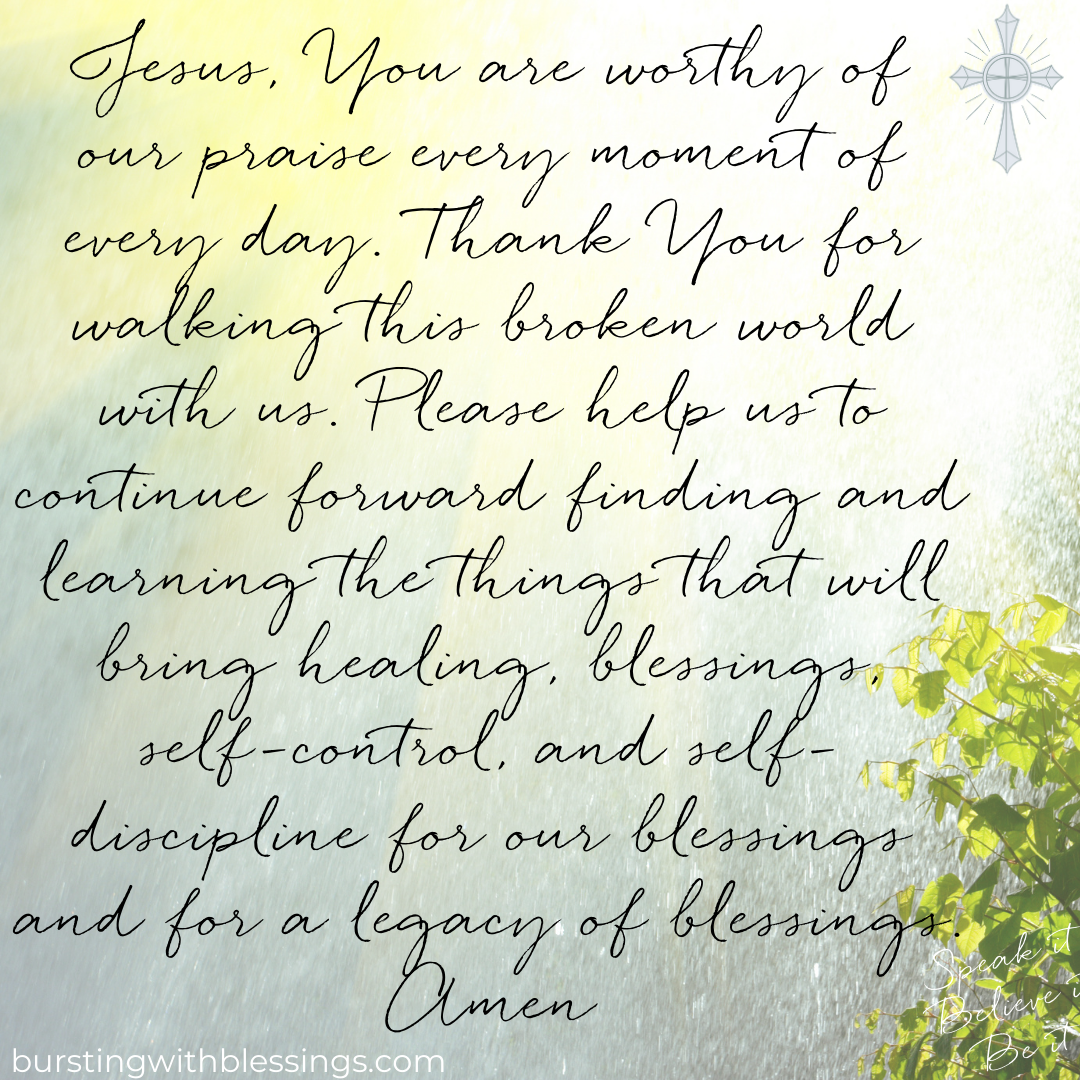 Jesus, You are worthy of
our praise every moment of
every day. Thank You for
walking this broken world
with us. Please help us to
continue forward finding and
learning the things that will
bring healing, blessings,
self-control, and self-
discipline for our blessings
and for a legacy of blessings.
Amen
Speak it
Believe it
Be it
burstingwithblessings.com